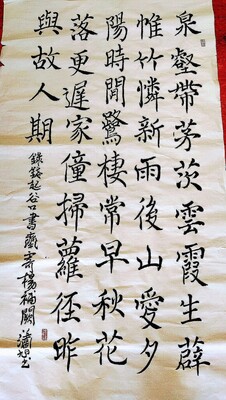 泉壑帶茅茨雲霞生薜
惟竹憐新雨後山愛夕
陽時閒鷺棲常早秋花
落更遲家僮掃蘿徑昨
與故人期
錄錢起谷口書齋寄楊補闕 潘